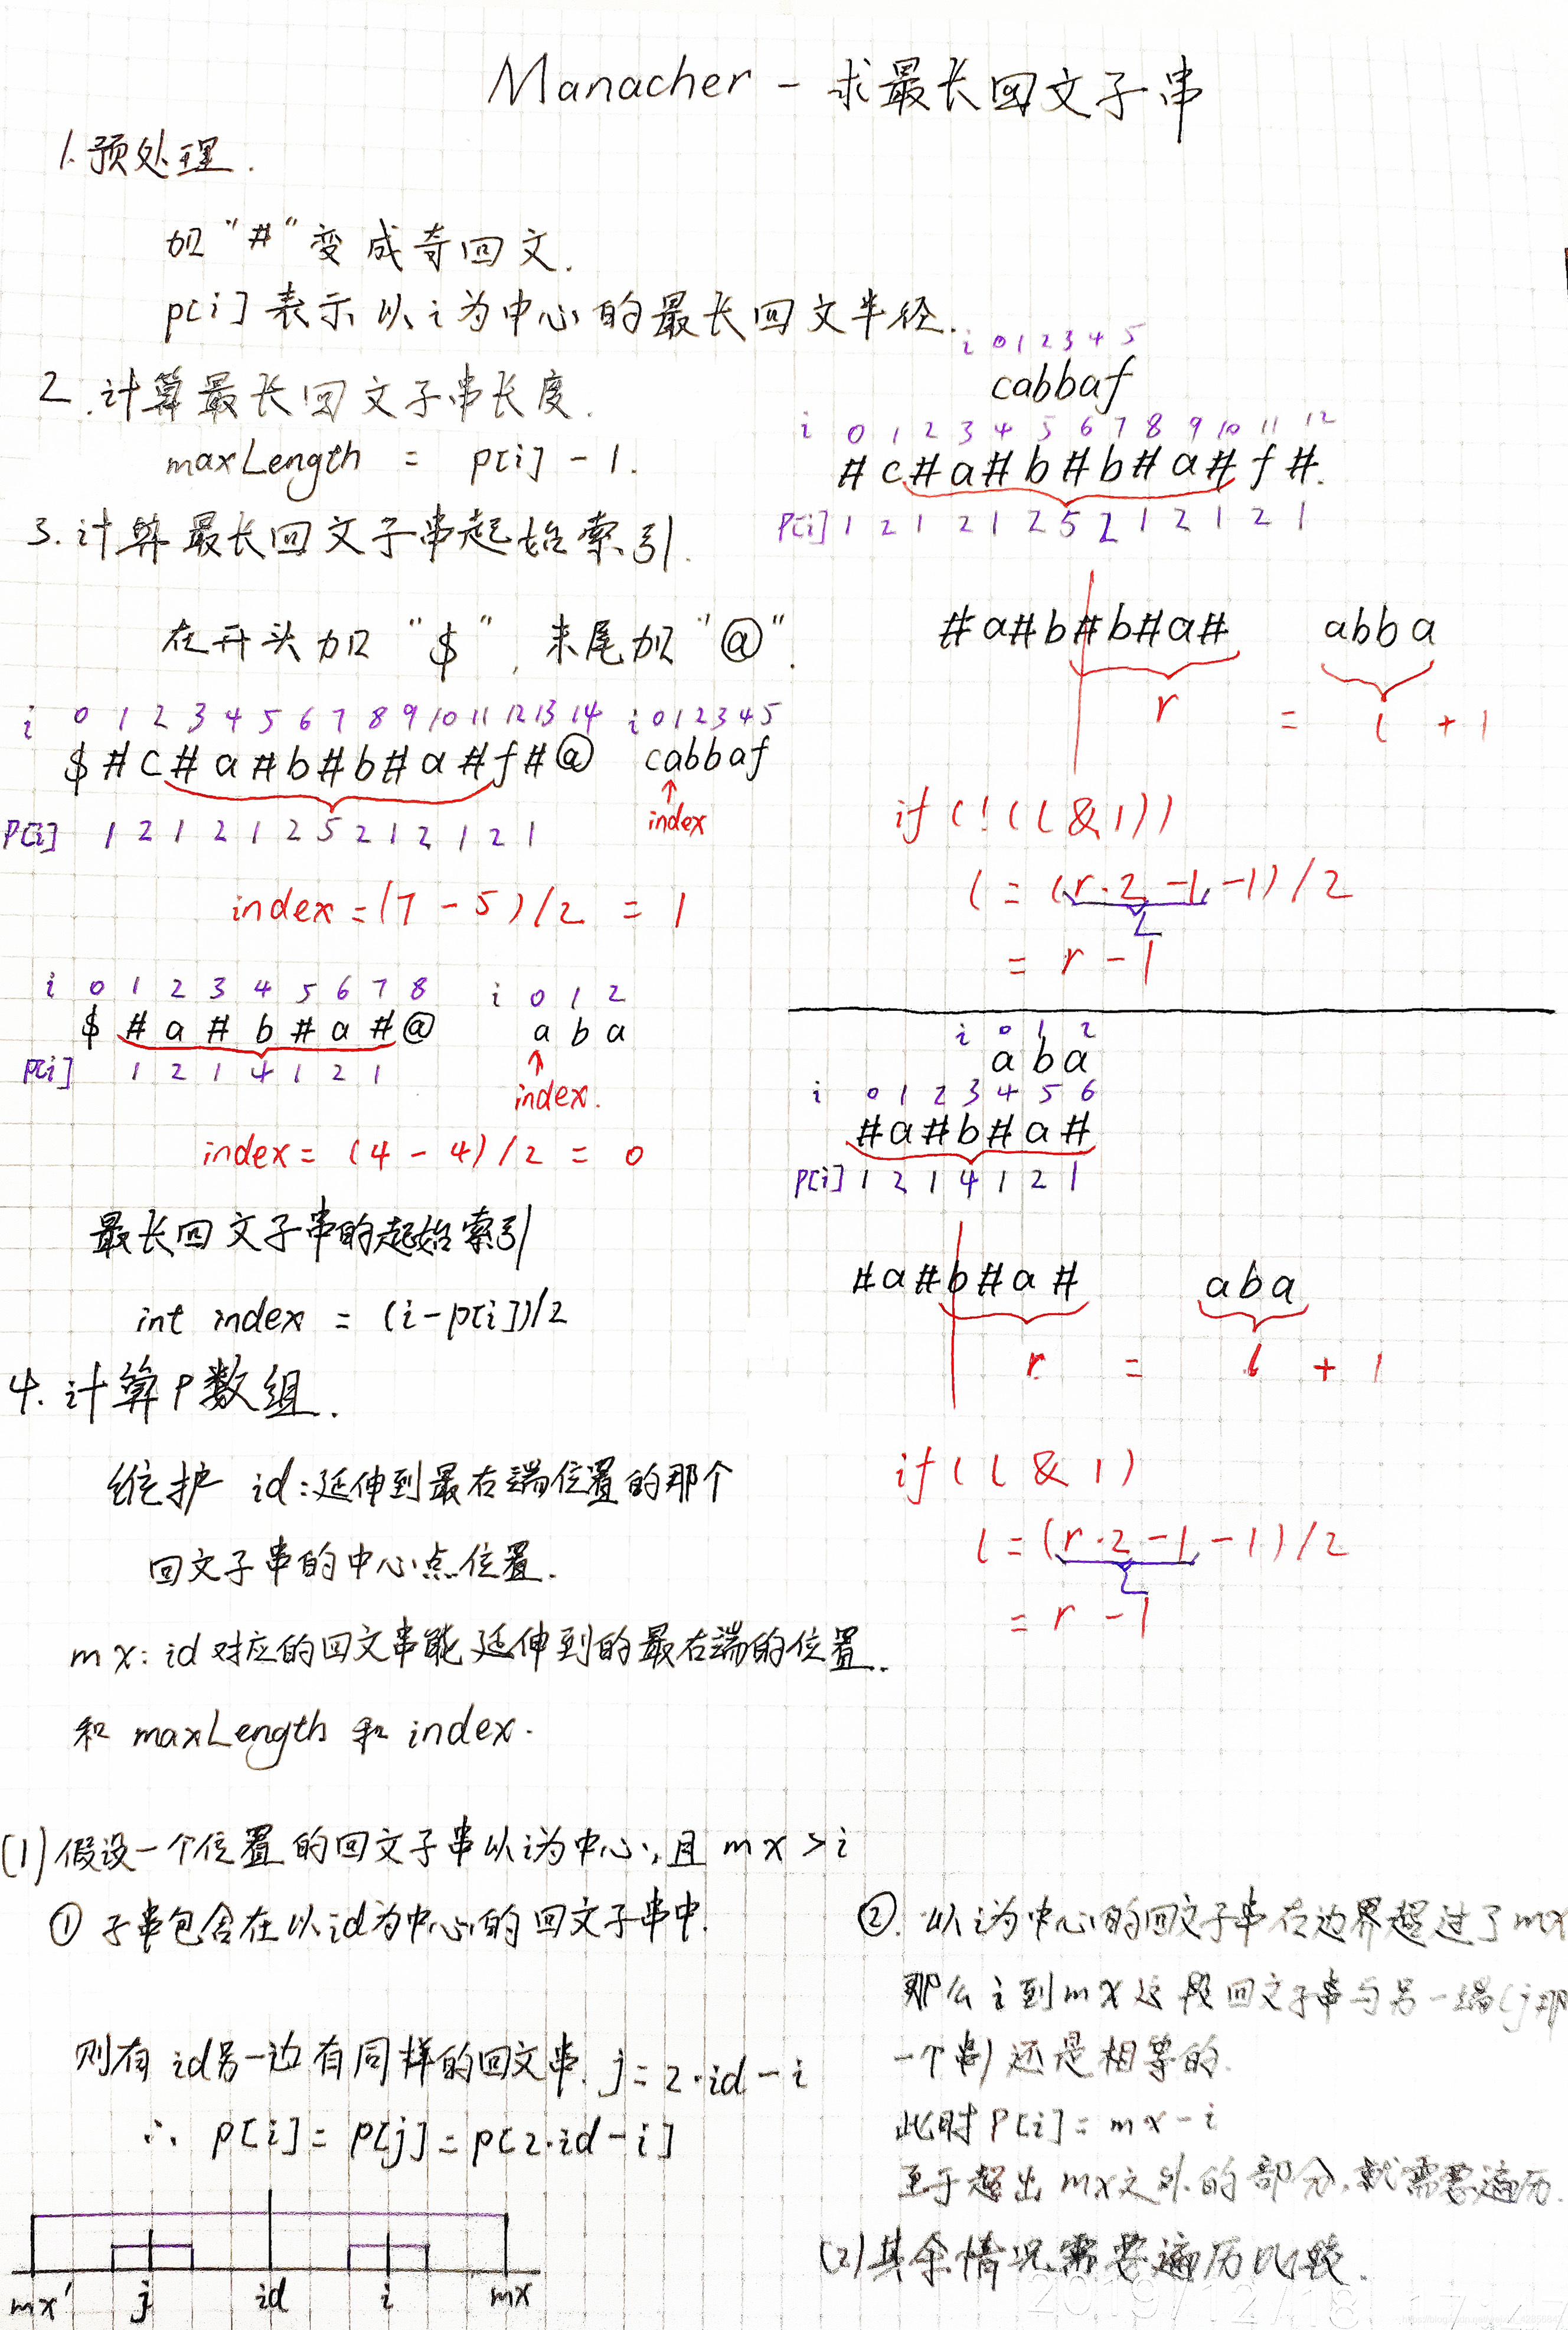 Manacher - 求最长回文子串
1. 预处理.
加 "#" 变成奇回文.
p[i] 表示以 i 为中心的最长回文半径.
2. 计算最长回文子串长度.
maxLength = p[i] - 1.
3. 计算最长回文子串起始索引.
在开头加 "$", 末尾加 "@".
i 0 1 2 3 4 5 6 7 8 9 10 11 12 13 14 i 0 1 2 3 4 5
$ # c # a # b # b # a # f # @ cabbaf
P[i] 1 2 1 2 1 2 5 2 1 2 1 2 1
index
index = (7 - 5) / 2 = 1
i 0 1 2 3 4 5 6 7 8 i 0 1 2
$ # a # b # a # @ a b a
P[i] 1 2 1 4 1 2 1
index.
index = (4 - 4) / 2 = 0
最长回文子串的起始索引
int index = (i - p[i])/2
4. 计算 P 数组.
维护 id: 延伸到最右端位置的那个
回文子串的中心点位置.
mx: id 对应的回文串能延伸到的最右端的位置.
和 maxLength 和 index.
i 0 1 2 3 4 5
cabbaf
i 0 1 2 3 4 5 6 7 8 9 10 11 12
# c # a # b # b # a # f #.
P[i] 1 2 1 2 1 2 5 2 1 2 1 2 1
# a # b # b # a # abba
r = l + 1
if (!(l & 1))
l = (r·2 - 1 - 1) / 2
L
= r - 1
i 0 1 2
a b a
i 0 1 2 3 4 5 6
# a # b # a #
P[i] 1 2 1 4 1 2 1
# a # b # a # aba
r = l + 1
if (l & 1)
l = (r·2 - 1 - 1) / 2
L
= r - 1
(1) 假设一个位置的回文子串以 i 为中心, 且 mx > i
① 子串包含在以 id 为中心的回文子串中.
则有 id 另一边有同样的回文串. j = 2·id - i
∴ p[i] = p[j] = p[2·id - i]
mx' j id i mx
②. 以 i 为中心的回文子串右边界超过了 mx
那么 i 到 mx 这段回文子串与另一端(j那
一个串) 还是相等的.
此时 P[i] = mx - i
至于超出 mx 之外的部分, 就需要遍历.
(2) 其余情况需要遍历比较.